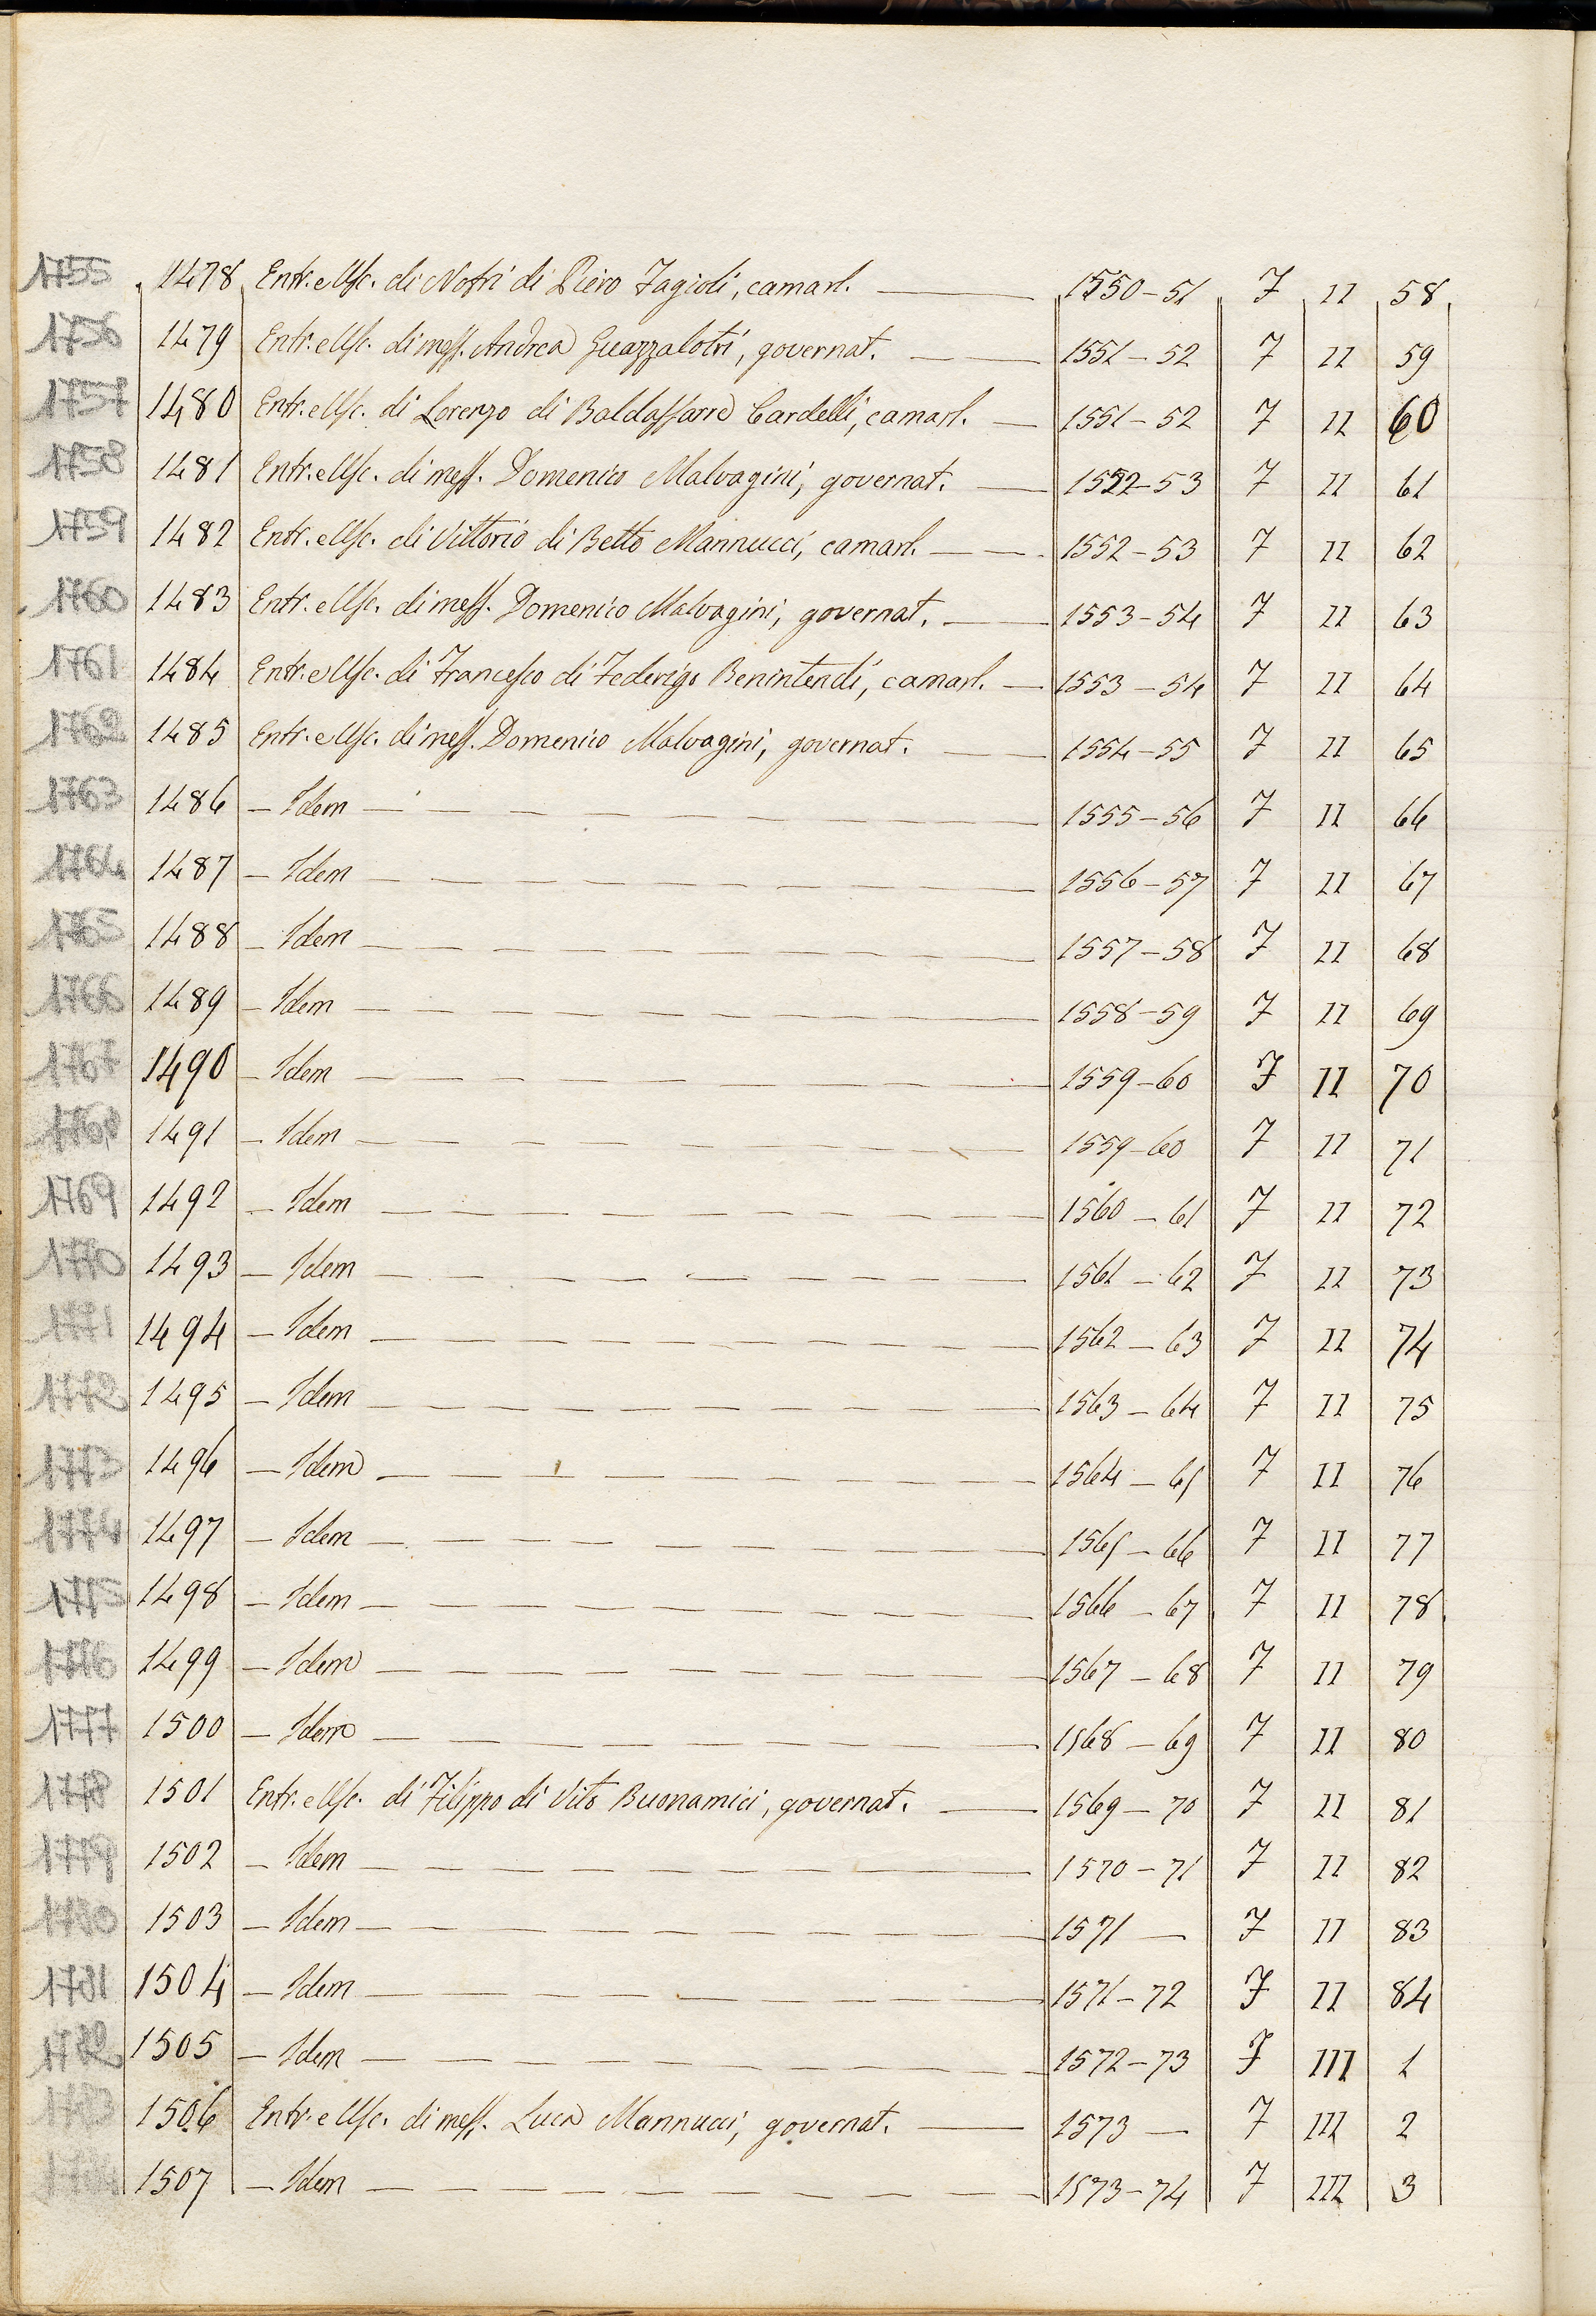 1755 1478 Entr. e Usc. di Nofri di Piero Fagioli, camarl. — 1550-51 7 II 58
1756 1479 Entr. e Usc. di mess. Andrea Guazzalotri, governat. — 1551-52 7 II 59
1757 1480 Entr. e Usc. di Lorenzo di Baldassarre Cardelli, camarl. — 1551-52 7 II 60
1758 1481 Entr. e Usc. di mess. Domenico Malvagini, governat. — 1552-53 7 II 61
1759 1482 Entr. e Usc. di Vittorio di Betto Mannucci, camarl. — 1552-53 7 II 62
1760 1483 Entr. e Usc. di mess. Domenico Malvagini, governat. — 1553-54 7 II 63
1761 1484 Entr. e Usc. di Francesco di Federigo Benintendi, camarl. — 1553-54 7 II 64
1762 1485 Entr. e Usc. di mess. Domenico Malvagini, governat. — 1554-55 7 II 65
1763 1486 — Idem — 1555-56 7 II 66
1764 1487 — Idem — 1556-57 7 II 67
1765 1488 — Idem — 1557-58 7 II 68
1766 1489 — Idem — 1558-59 7 II 69
1767 1490 — Idem — 1559-60 7 II 70
1768 1491 — Idem — 1559-60 7 II 71
1769 1492 — Idem — 1560-61 7 II 72
1770 1493 — Idem — 1561-62 7 II 73
1771 1494 — Idem — 1562-63 7 II 74
1772 1495 — Idem — 1563-64 7 II 75
1773 1496 — Idem — 1564-65 7 II 76
1774 1497 — Idem — 1565-66 7 II 77
1775 1498 — Idem — 1566-67 7 II 78
1776 1499 — Idem — 1567-68 7 II 79
1777 1500 — Idem — 1568-69 7 II 80
1778 1501 Entr. e Usc. di Filippo di Vito Buonamici, governat. — 1569-70 7 II 81
1779 1502 — Idem — 1570-71 7 II 82
1780 1503 — Idem — 1571 — 7 II 83
1781 1504 — Idem — 1571-72 7 II 84
1782 1505 — Idem — 1572-73 7 III 1
1783 1506 Entr. e Usc. di mess. Luca Mannucci, governat. — 1573 — 7 III 2
1784 1507 — Idem — 1573-74 7 III 3